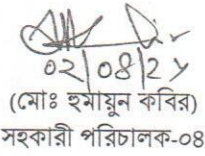 02/08/2১
(মোঃ হুমায়ুন কবির)
সহকারী পরিচালক-০৪